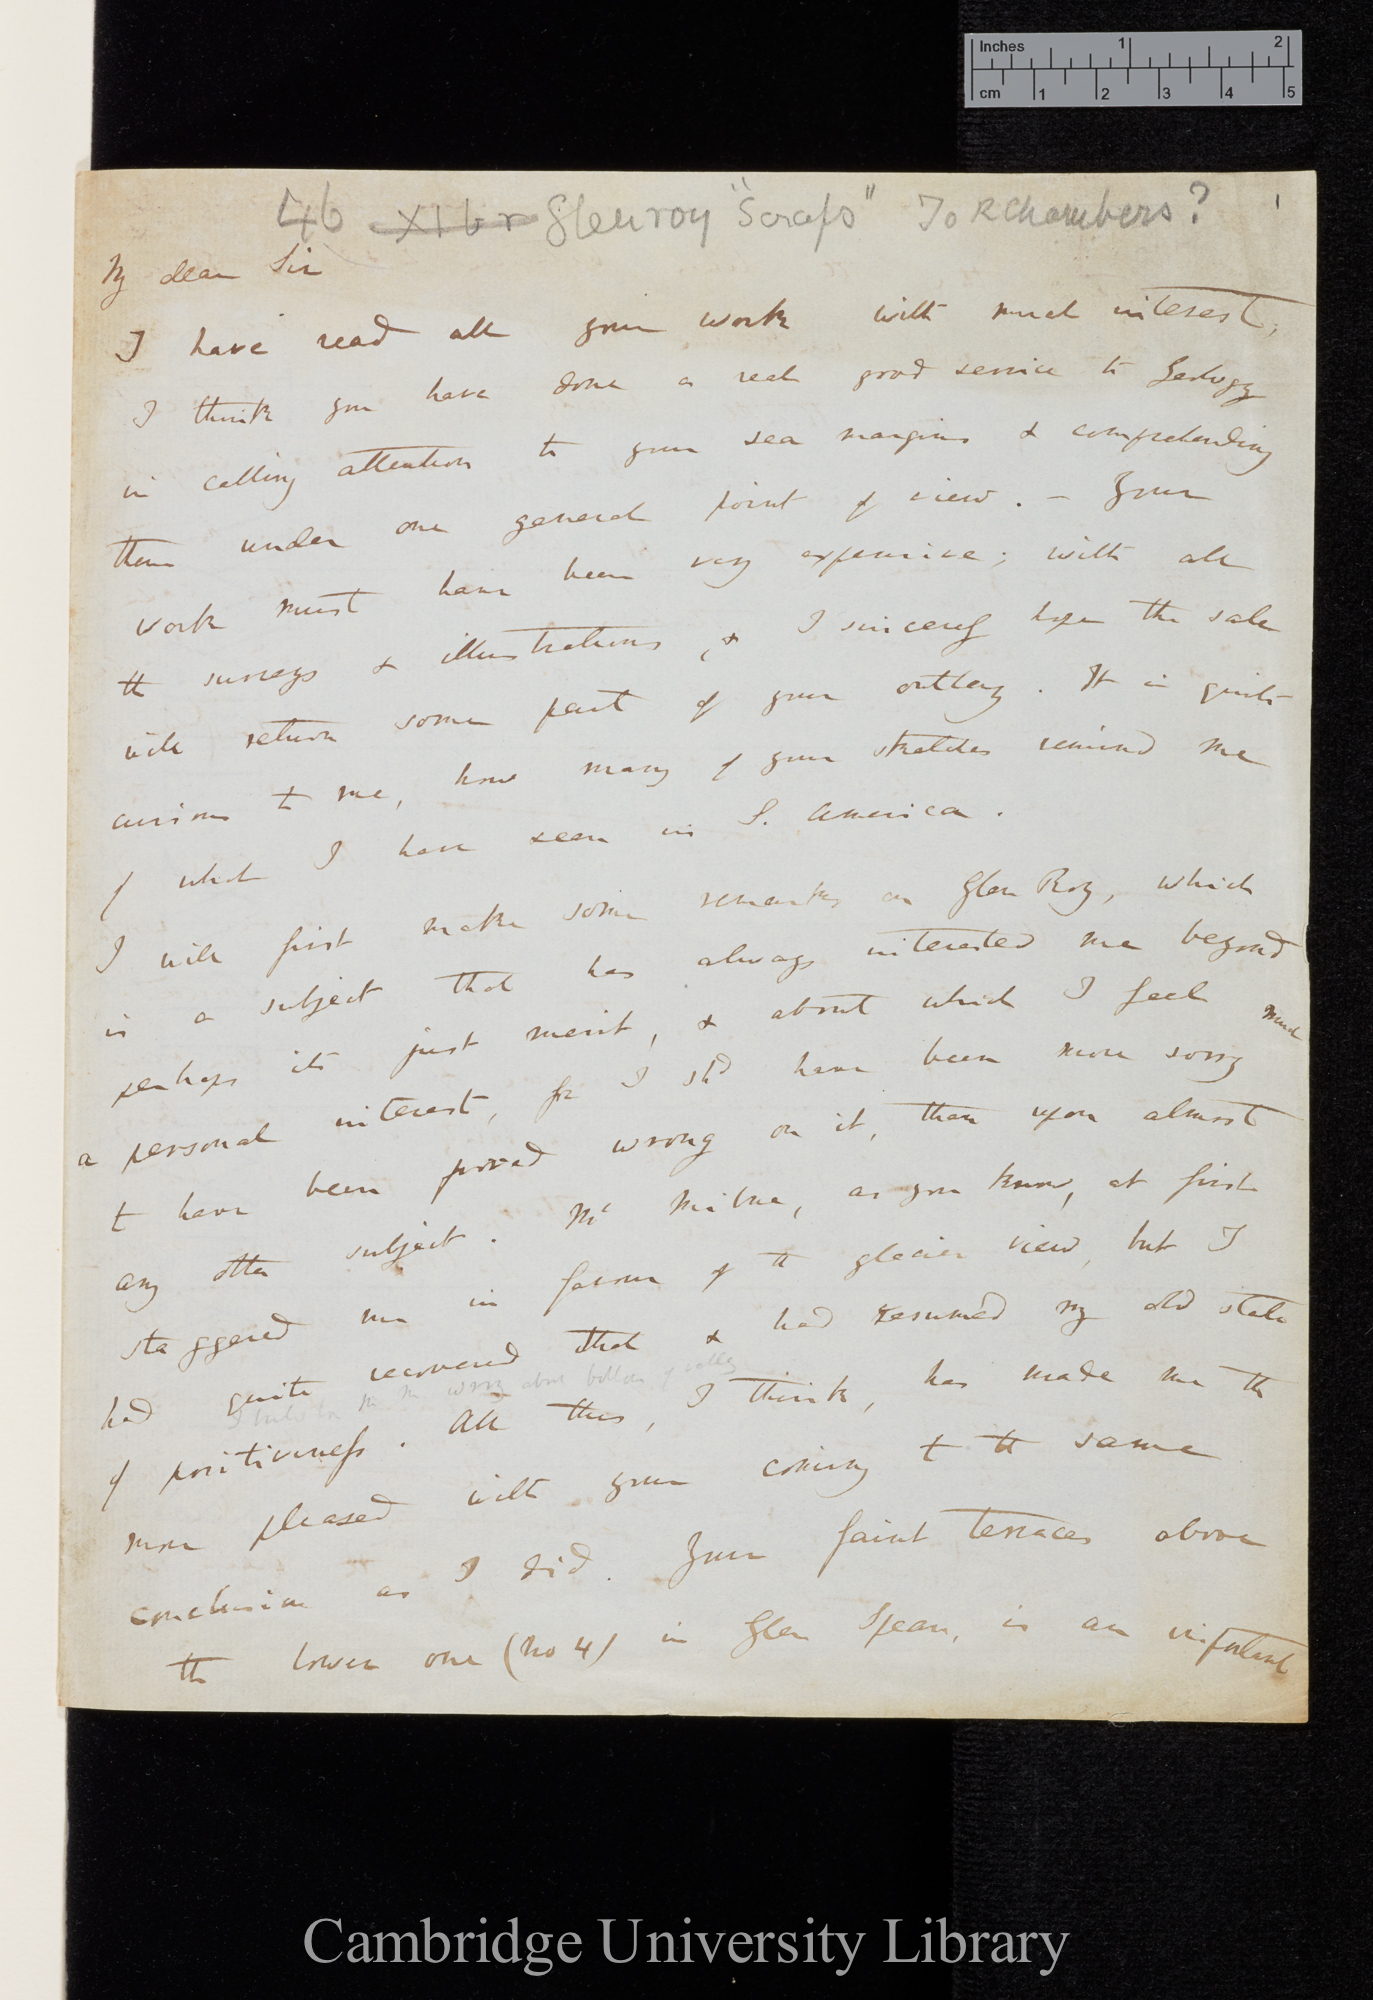 Inches 1 2
cm 1 2 3 4 5
46 XIbr Glenroy "Scraps" To R Chambers? 1
My dear Sir
I have read all your work with much interest,
I think you have done a real good service to Geology
in calling attention to your sea margins & comprehending
them under one general point of view. – Your
work must have been very expensive; with all
the surveys & illustrations, & I sincerely hope the sale
will return some part of your outlay. It is quite
curious to me, how many of your sketches remind me
of what I have seen in S. America.
I will first make some remarks on Glen Roy, which
is a subject that has always interested me beyond
perhaps its just merit, & about which I feel much
a personal interest, for I shd have been more sorry
to have been proved wrong on it, than upon almost
any other subject. Mr Milne, as you know, at first
staggered me in favour of the glacier view, but I
had quite recovered that & had resumed my old state
wrong about bottom of valley
of positiveness. All this, I think, has made me the
more pleased with your coming to the same
conclusion as I did. Your faint terraces above
the lower one (no 4) in Glen Spean, is an important
Cambridge University Library